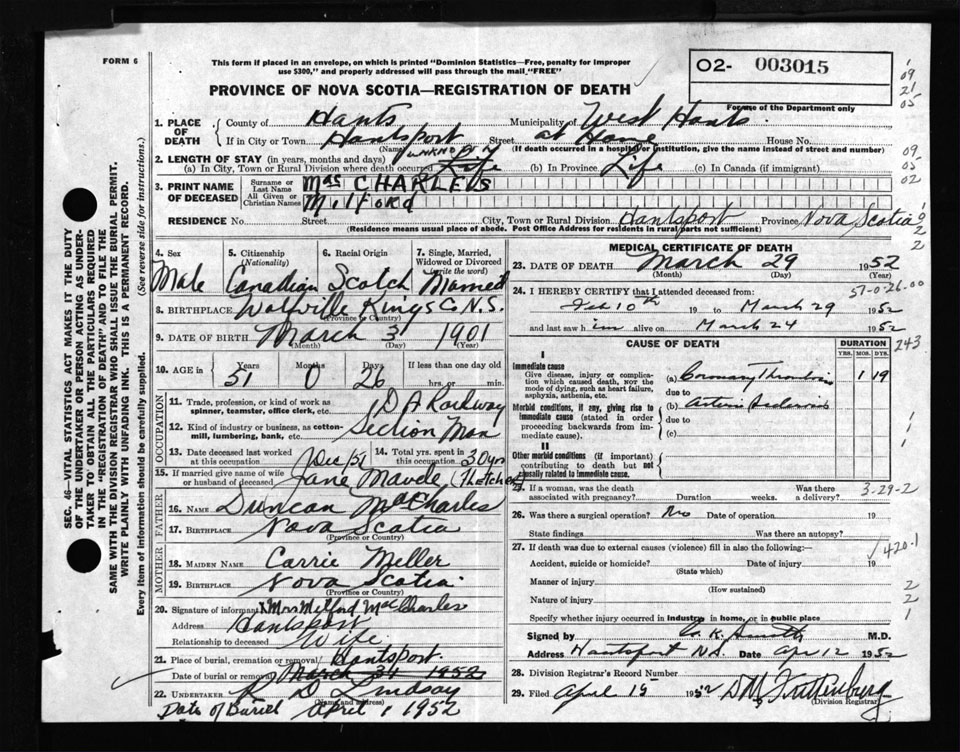 FORM 6
This form if placed in an envelope, on which is printed "Dominion Statistics—Free, penalty for improper
use $300," and properly addressed will pass through the mail "FREE"
O2- 003015
For use of the Department only
PROVINCE OF NOVA SCOTIA—REGISTRATION OF DEATH
09
21
03
09
03
02
SEC. 46—VITAL STATISTICS ACT MAKES IT THE DUTY
OF THE UNDERTAKER OR PERSON ACTING AS UNDER-
TAKER TO OBTAIN ALL THE PARTICULARS REQUIRED
IN THE "REGISTRATION OF DEATH" AND TO FILE THE
SAME WITH THE DIVISION REGISTRAR WHO SHALL ISSUE THE BURIAL PERMIT.
WRITE PLAINLY WITH UNFADING INK. THIS IS A PERMANENT RECORD.
Every item of information should be carefully supplied. (See reverse side for instructions.)
1. PLACE OF DEATH
County of Hants Municipality of West Hants
If in City or Town Hantsport Street at Home House No.
(Name) (If death occurred in a hospital or institution, give the name instead of street and number)
2. LENGTH OF STAY (in years, months and days) UNKNOWN
(a) In City, Town or Rural Division where death occurred Life (b) In Province Life (c) In Canada (if immigrant)
3. PRINT NAME OF DECEASED
Surname or Last Name MacCHARLES
All Given or Christian Names Milford
RESIDENCE No. Street City, Town or Rural Division Hantsport Province Nova Scotia
(Residence means usual place of abode. Post Office Address for residents in rural parts not sufficient)
4. Sex Male
5. Citizenship (Nationality) Canadian
6. Racial Origin Scotch
7. Single, Married, Widowed or Divorced (write the word) Married
8. BIRTHPLACE Wolfville Kings Co N.S.
(Province or Country)
9. DATE OF BIRTH March 3 1901
(Month) (Day) (Year)
10. AGE in Years 51 Months 0 Days 26 If less than one day old hrs. or min.
OCCUPATION
11. Trade, profession, or kind of work as spinner, teamster, office clerk, etc. D A Railway
12. Kind of industry or business, as cotton-mill, lumbering, bank, etc. Section Man
13. Date deceased last worked at this occupation Dec/51
14. Total yrs. spent in this occupation 30 yrs
15. If married give name of wife or husband of deceased Jane Maude (Thatcher)
FATHER
16. NAME Duncan MacCharles
17. BIRTHPLACE Nova Scotia
(Province or Country)
MOTHER
18. MAIDEN NAME Carrie Meller
19. BIRTHPLACE Nova Scotia
(Province or Country)
20. Signature of informant Mrs Milford MacCharles
Address Hantsport
Relationship to deceased Wife
21. Place of burial, cremation or removal Hantsport
Date of burial or removal March 31 1952
22. UNDERTAKER R D Lindsay
(Name and address)
Date of Burial April 1, 1952
MEDICAL CERTIFICATE OF DEATH
23. DATE OF DEATH March 29 1952
(Month) (Day) (Year)
57-0-26-00
24. I HEREBY CERTIFY that I attended deceased from:
Feb 10th 19 to March 29 1952
and last saw him alive on March 24 1952
243
CAUSE OF DEATH
DURATION
YRS. MOS. DYS.
I
Immediate cause
Give disease, injury or complication which caused death, NOT the mode of dying, such as heart failure, asphyxia, asthenia, etc.
(a) Coronary Thrombosis 1 19
due to
Morbid conditions, if any, giving rise to immediate cause (stated in order proceeding backwards from immediate cause).
(b)
due to
(c)
II
Other morbid conditions (if important) contributing to death but not causally related to immediate cause.
25. If a woman, was the death associated with pregnancy? Duration weeks. Was there a delivery?
3-29-2
26. Was there a surgical operation? No Date of operation 19
State findings Was there an autopsy?
27. If death was due to external causes (violence) fill in also the following:—
420-1
Accident, suicide or homicide? Date of injury 19
(State which)
Manner of injury
(How sustained)
Nature of injury
Specify whether injury occurred in industry in home, or in public place
2
2
1
Signed by K. Smith M.D.
Address Hantsport N.S. Date Apr 12 1952
28. Division Registrar's Record Number
29. Filed April 15 1952
(Division Registrar)